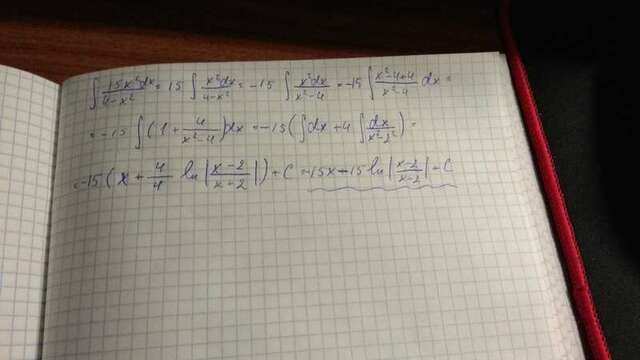 ∫ 15x²dx/4-x² = 15 ∫ x²dx/4-x² = -15 ∫ x²dx/x²-4 = -15 ∫ x²-4+4/x²-4 dx =
= -15 ∫ (1 + 4/x²-4) dx = -15 (∫ dx + 4 ∫ dx/x²-2²) =
= -15 (x + 4/4 ln |x-2/x+2|) + C = -15x - 15 ln |x-2/x+2| + C